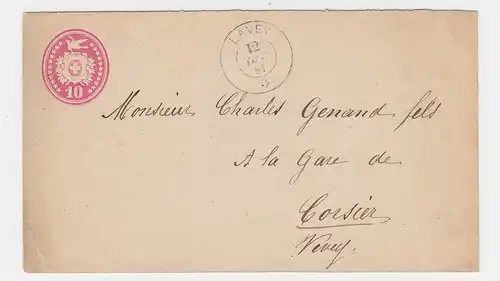 10
LAVEY
12
Monsieur Charles Genand fils
A la Gare de
Corsier
Vevey.